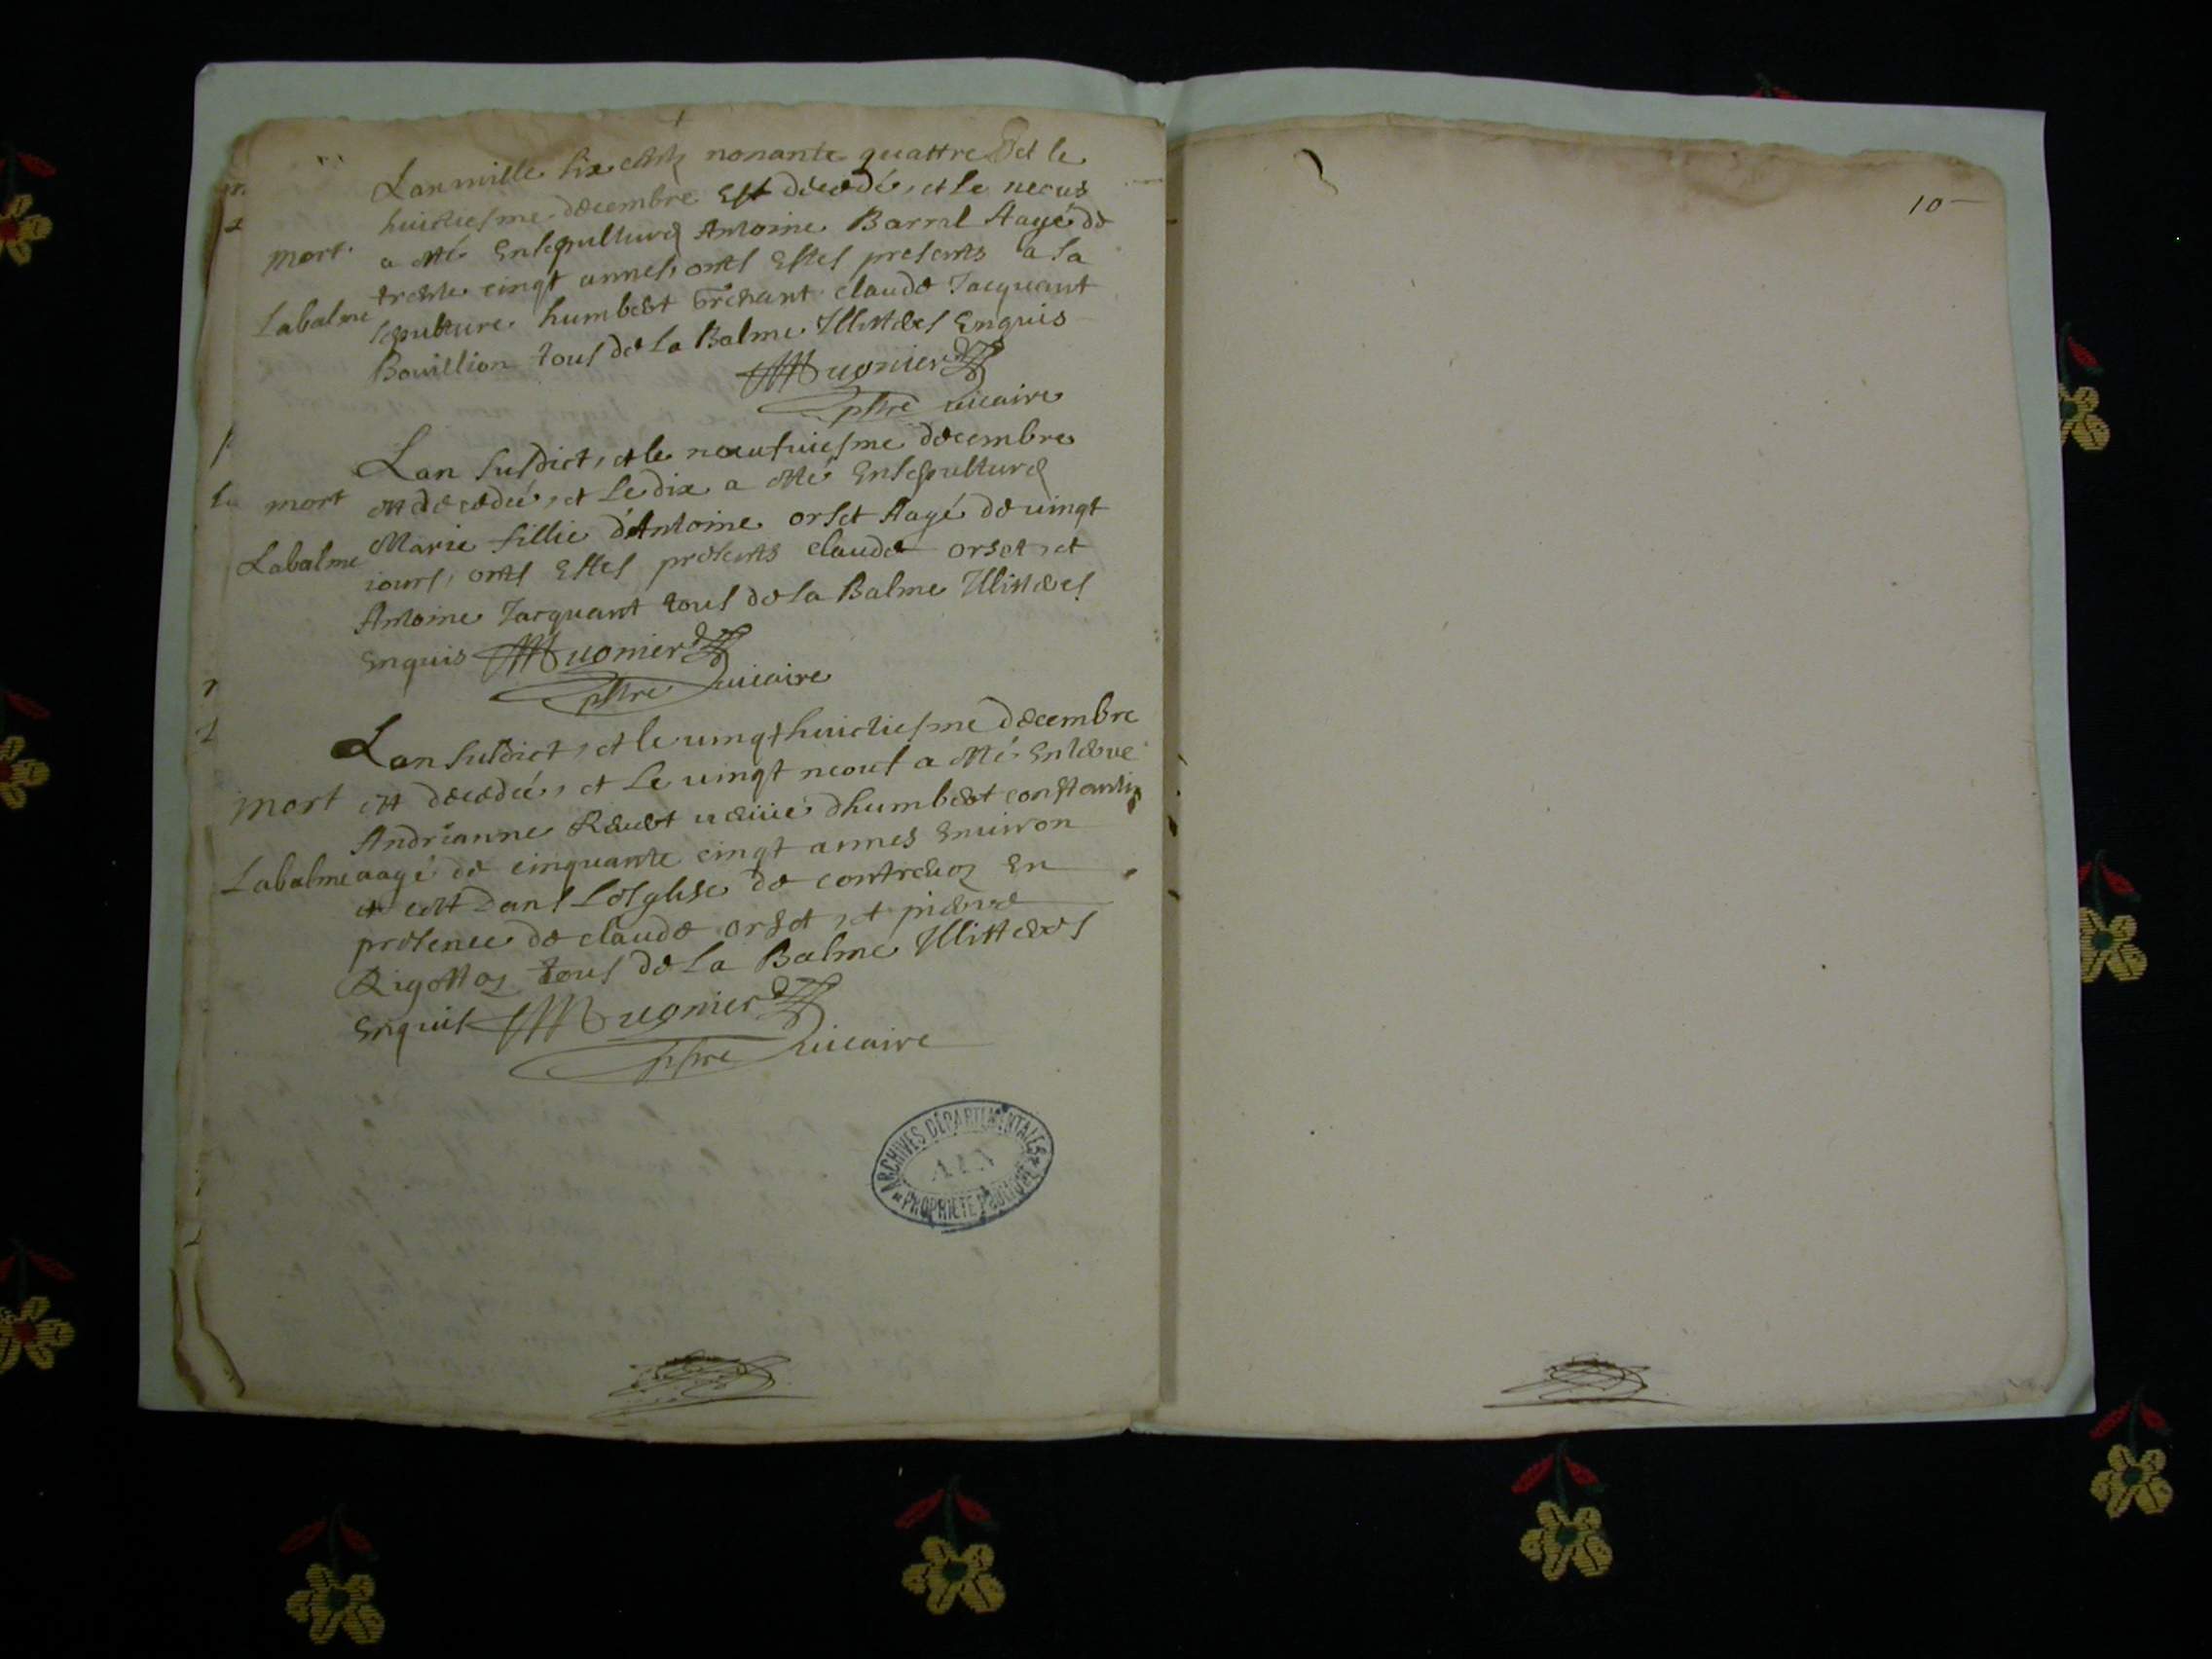 Lan mille six cents nonante quattre et le
huictiesme decembre Est decedé, et le neuf
mort. a esté Ensepulturé Antoine Barral Aagé de
trente cingt annes, onts Estes presents a sa
Labalme sepulture humbert claude Jacquant
Bouillion tous de La Balme Illitteres Enquis
Mugnier
pbtre vicaire
Lan susdict, et le neufuiesme decembre
mort est decedée, et Le dix a esté Ensepulturé
Marie fillie d'Antoine orset Aagé de uingt
Labalme iours, onts Estes presents claude orset, et
Antoine Jacquant tous de la Balme Illitteres
Enquis Mugnier
pbtre vicaire
Lan susdict, et le uingt huictiesme decembre
mort est decedée, et Le uingt neouf a esté Enterre
Andrianne ueüue dhumbert constantin
Labalme aagé de cinquante cingt annes Enuiron
et cest dans LEsglise de contreuoz En
presence de claude orset, et pierre
Rigottoz tous de La Balme Illitteres
Enquis Mugnier
pbtre vicaire
ARCHIVES DÉPARTEMENTALES
AIN
PROPRIÉTÉ PUBLIQUE
10